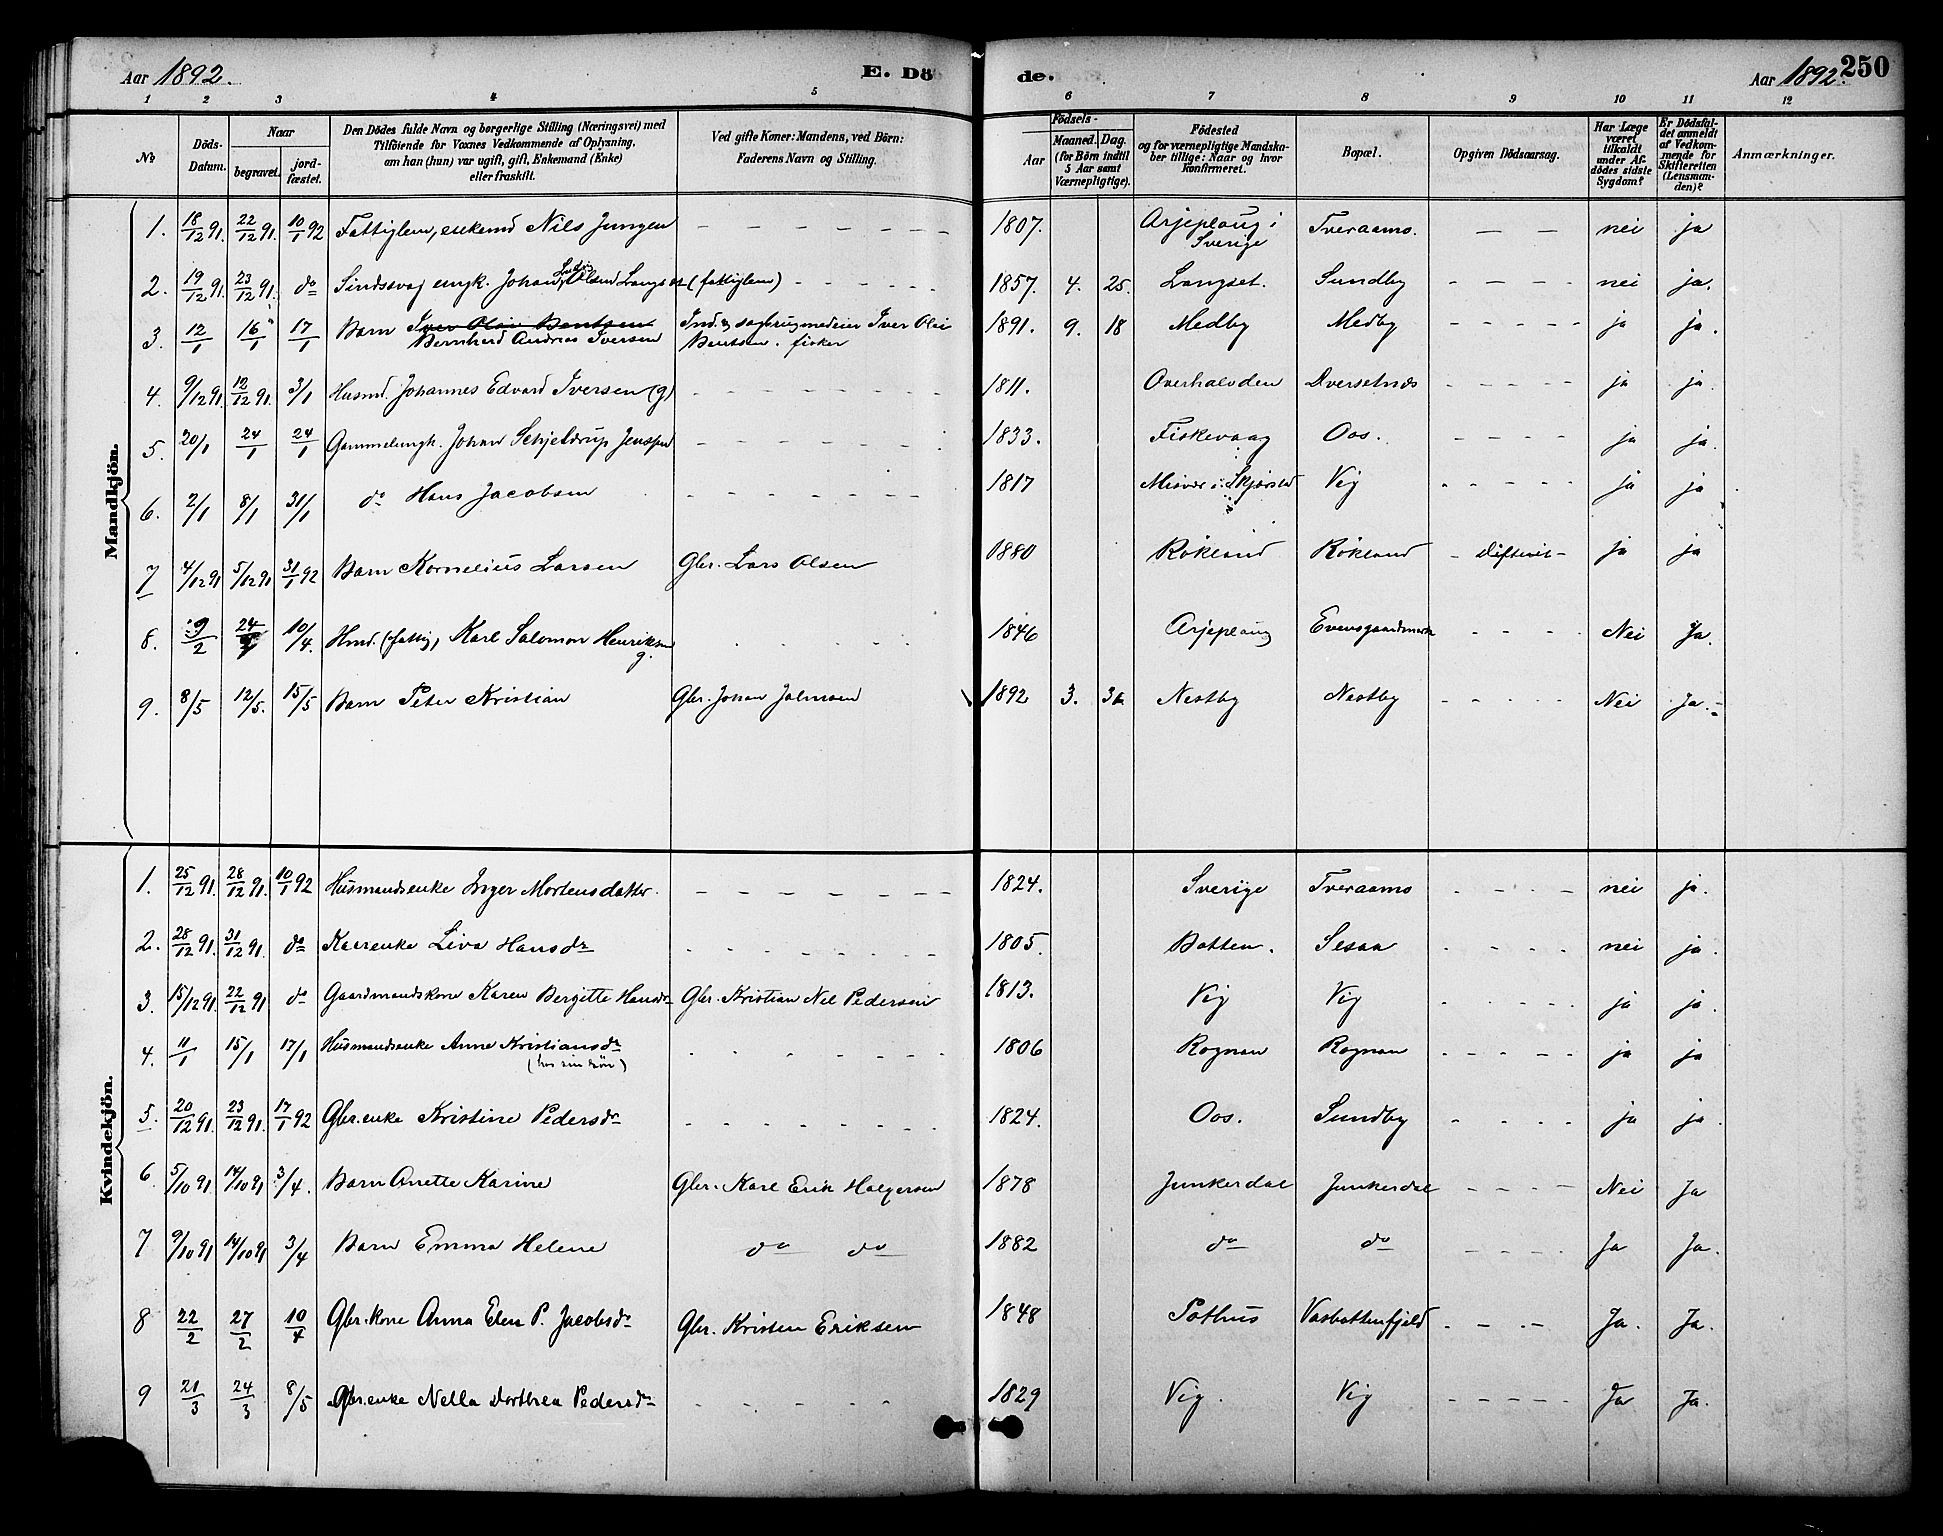 Aar 1892. E. Dö de. Aar 1892. 250
1 2 3 4 5 6 7 8 9 10 11 12
No Döds-Datum. Naar begravet. jord-fæstet. Den Dödes fulde Navn og borgerlige Stilling (Næringsvei) med Tilföiende for Voxnes Vedkommende af Oplysning, om han (hun) var ugift, gift, Enkemand (Enke) eller fraskilt. Ved gifte Koner: Mandens, ved Börn: Faderens Navn og Stilling. Födsels- Aar Maaned. Dag. (for Börn indtil 5 Aar samt Værnepligtige). Födested og for værnepligtige Mandskaber tillige: Naar og hvor konfirmeret. Bopæl. Opgiven Dödsaarsag. Har Læge været tilkaldt under Afdödes sidste Sygdom? Er Dödsfaldet anmeldt af Vedkommende for Skifteretten (Lensmanden)? Anmærkninger.
Mandkjön.
1. 18/12 91. 22/12 91. 10/1 92 Fattiglem, enkemd Nils Jungen – – – – – – 1807. Arjeplaug i Sverige Tveraamo. – – nei ja
2. 19/12 91. 23/12 91. do Sindssvag ungk. Johan Ludv. Olsen Langset (fattiglem) – – – – – 1857. 4. 25. Langset. Sundby – – – – nei ja.
3. 12/1 16/1 17/1 Barn Iver Olai Bentsen Bernhard Andreas Iversen Ind. & sagbrugmedeier Iver Olai Bentsen. fisker 1891. 9. 18 Medby Medby – – – – – ja ja.
4. 9/12 91. 12/12 91. 3/1 Husmd. Johannes Edvard Iversen (g) – – – – – – 1811. Overhalvden Dversetnes – – – – – ja ja.
5. 20/1 24/1 24/1 Gammelungk. Johan Schjeldrup Jenssen – – – – – – 1833. Fiskevaag Oos. – – – – ja ja.
6. 2/1 8/1 31/1 do Hans Jacobsen – – – – – – 1817 Misvær i Skjerstad Vig – – – – – ja ja
7 4/12 91 5/12 91 31/1 92 Barn Kornelius Larsen Gbr. Lars Olsen 1880 Rökland Rökland – difterit – ja ja
8. 9/2 24/2 10/4. Hmd. (fattig) Karl Salomon Henriksen g. – – – – 1846 Arjeplaug Evensgaardmark – – – – Nei Ja.
9. 8/5 12/5. 15/5 Barn Peter Kristian Gbr. Johan Jalmsen 1892 3. Nestby Nestby – – – – – Nei Ja.
Kvindekjön.
1. 25/12 91. 28/12 91. 10/1 92 Husmandsenke Inger Mortensdatter. – – – – – – 1824. Sverige Tveraamo – – – – nei ja.
2. 28/12 91. 31/12 91. do Kaarenke Liva Hansdr – – – – – – 1805. Botten. Sesaa – – – – nei ja.
3 15/12 91. 22/12 91. do Gaardmandskone Karen Bergitte Hansdr Gbr. Kristian Nel Pedersen 1813. Vig Vig – – – – ja ja.
4. 11/1 15/1 17/1 Husmandsenke Anne Kristiansdr (hos sin sön) – – – – – – 1806 Rognan Rognan – – – – – ja ja
5. 20/12 91. 23/12 91. 17/1 92 Gbr.enke Kristine Pedersdr – – – – – – 1824. Oos. Sundby – – – – ja ja.
6 5/10 91. 14/10 91 3/4. Barn Anette Karine Gbr. Karl Erik Holgersen 1878 Junkerdal Junkerdal – – – – Nei Ja
7 9/10 91 14/10 91 3/4 Barn Emma Helene do do 1882 do do – – – – Ja Ja.
8 22/2 27/2 10/4 Gbr.kone Anna Elen P. Jacobsdr Gbr. Kristen Eriksen 1848 Pothus Vasbottenfjeld – – – – Ja. Ja.
9 21/3 24/3 8/5 Gbr.enke Nella Dorthea Pedersdr – – – – – – 1829 Vig. Vig – – – – – Ja Ja.